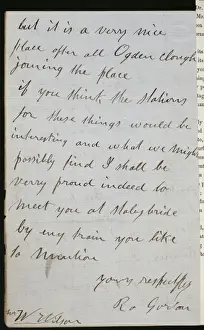 but it is a very nice
place after all Ogden Clough
joining the place
if you think the stations
for these things would be
interesting and what we might
possibly find I shall be
verry proud indeed to
meet you at stalybride
by eny train you like
to mention
yours respectfully
Ro Gordon
Mr W Wilson